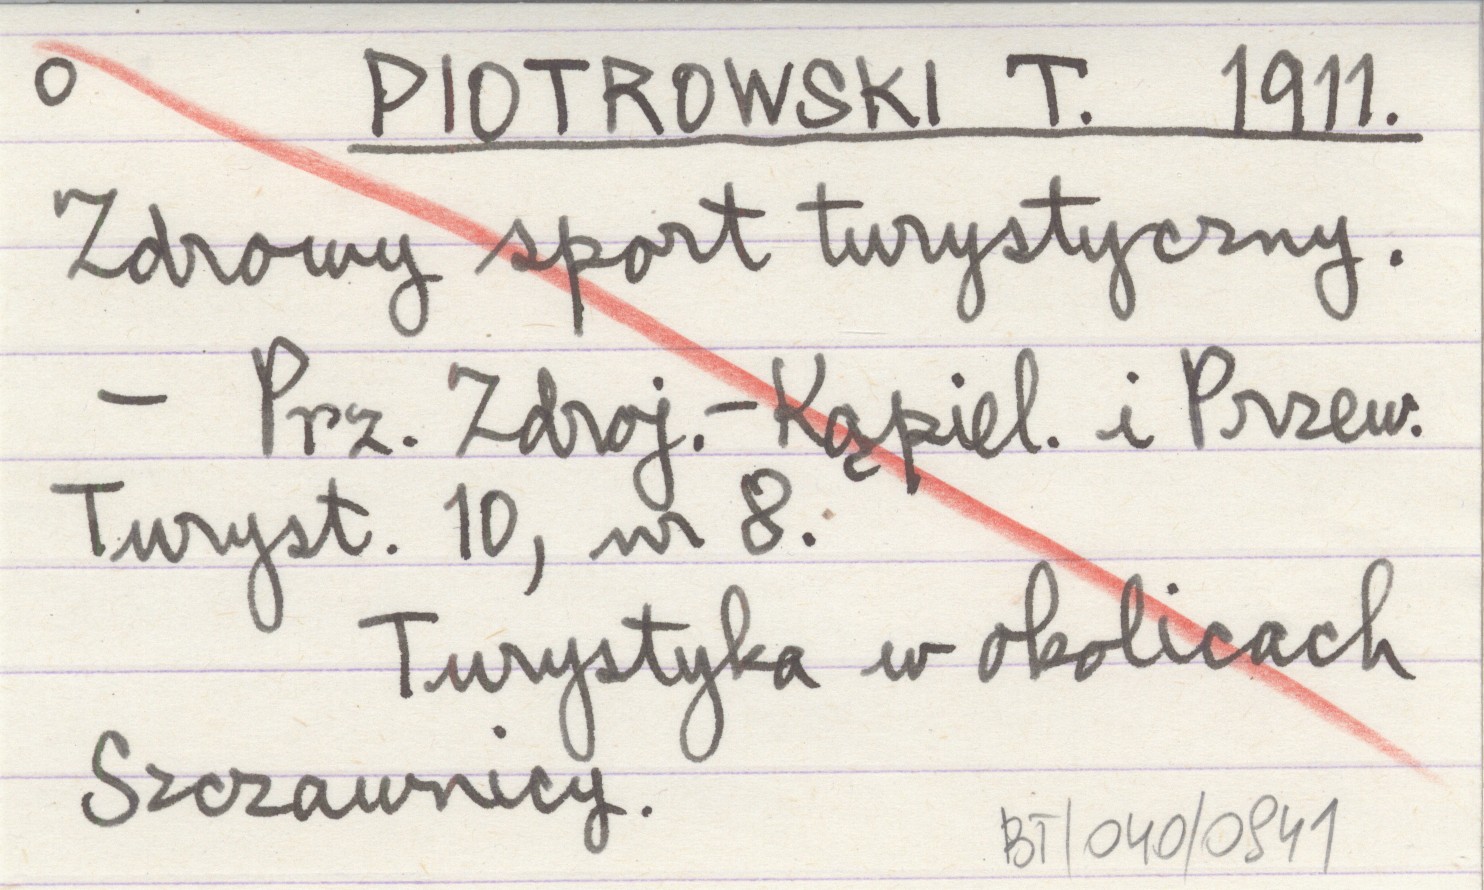 O PIOTROWSKI T. 1911.
Zdrowy sport turystyczny.
– Prz. Zdroj.-Kąpiel. i Przew.
Turyst. 10, nr 8.
Turystyka w okolicach
Szczawnicy.
BT/040/0841